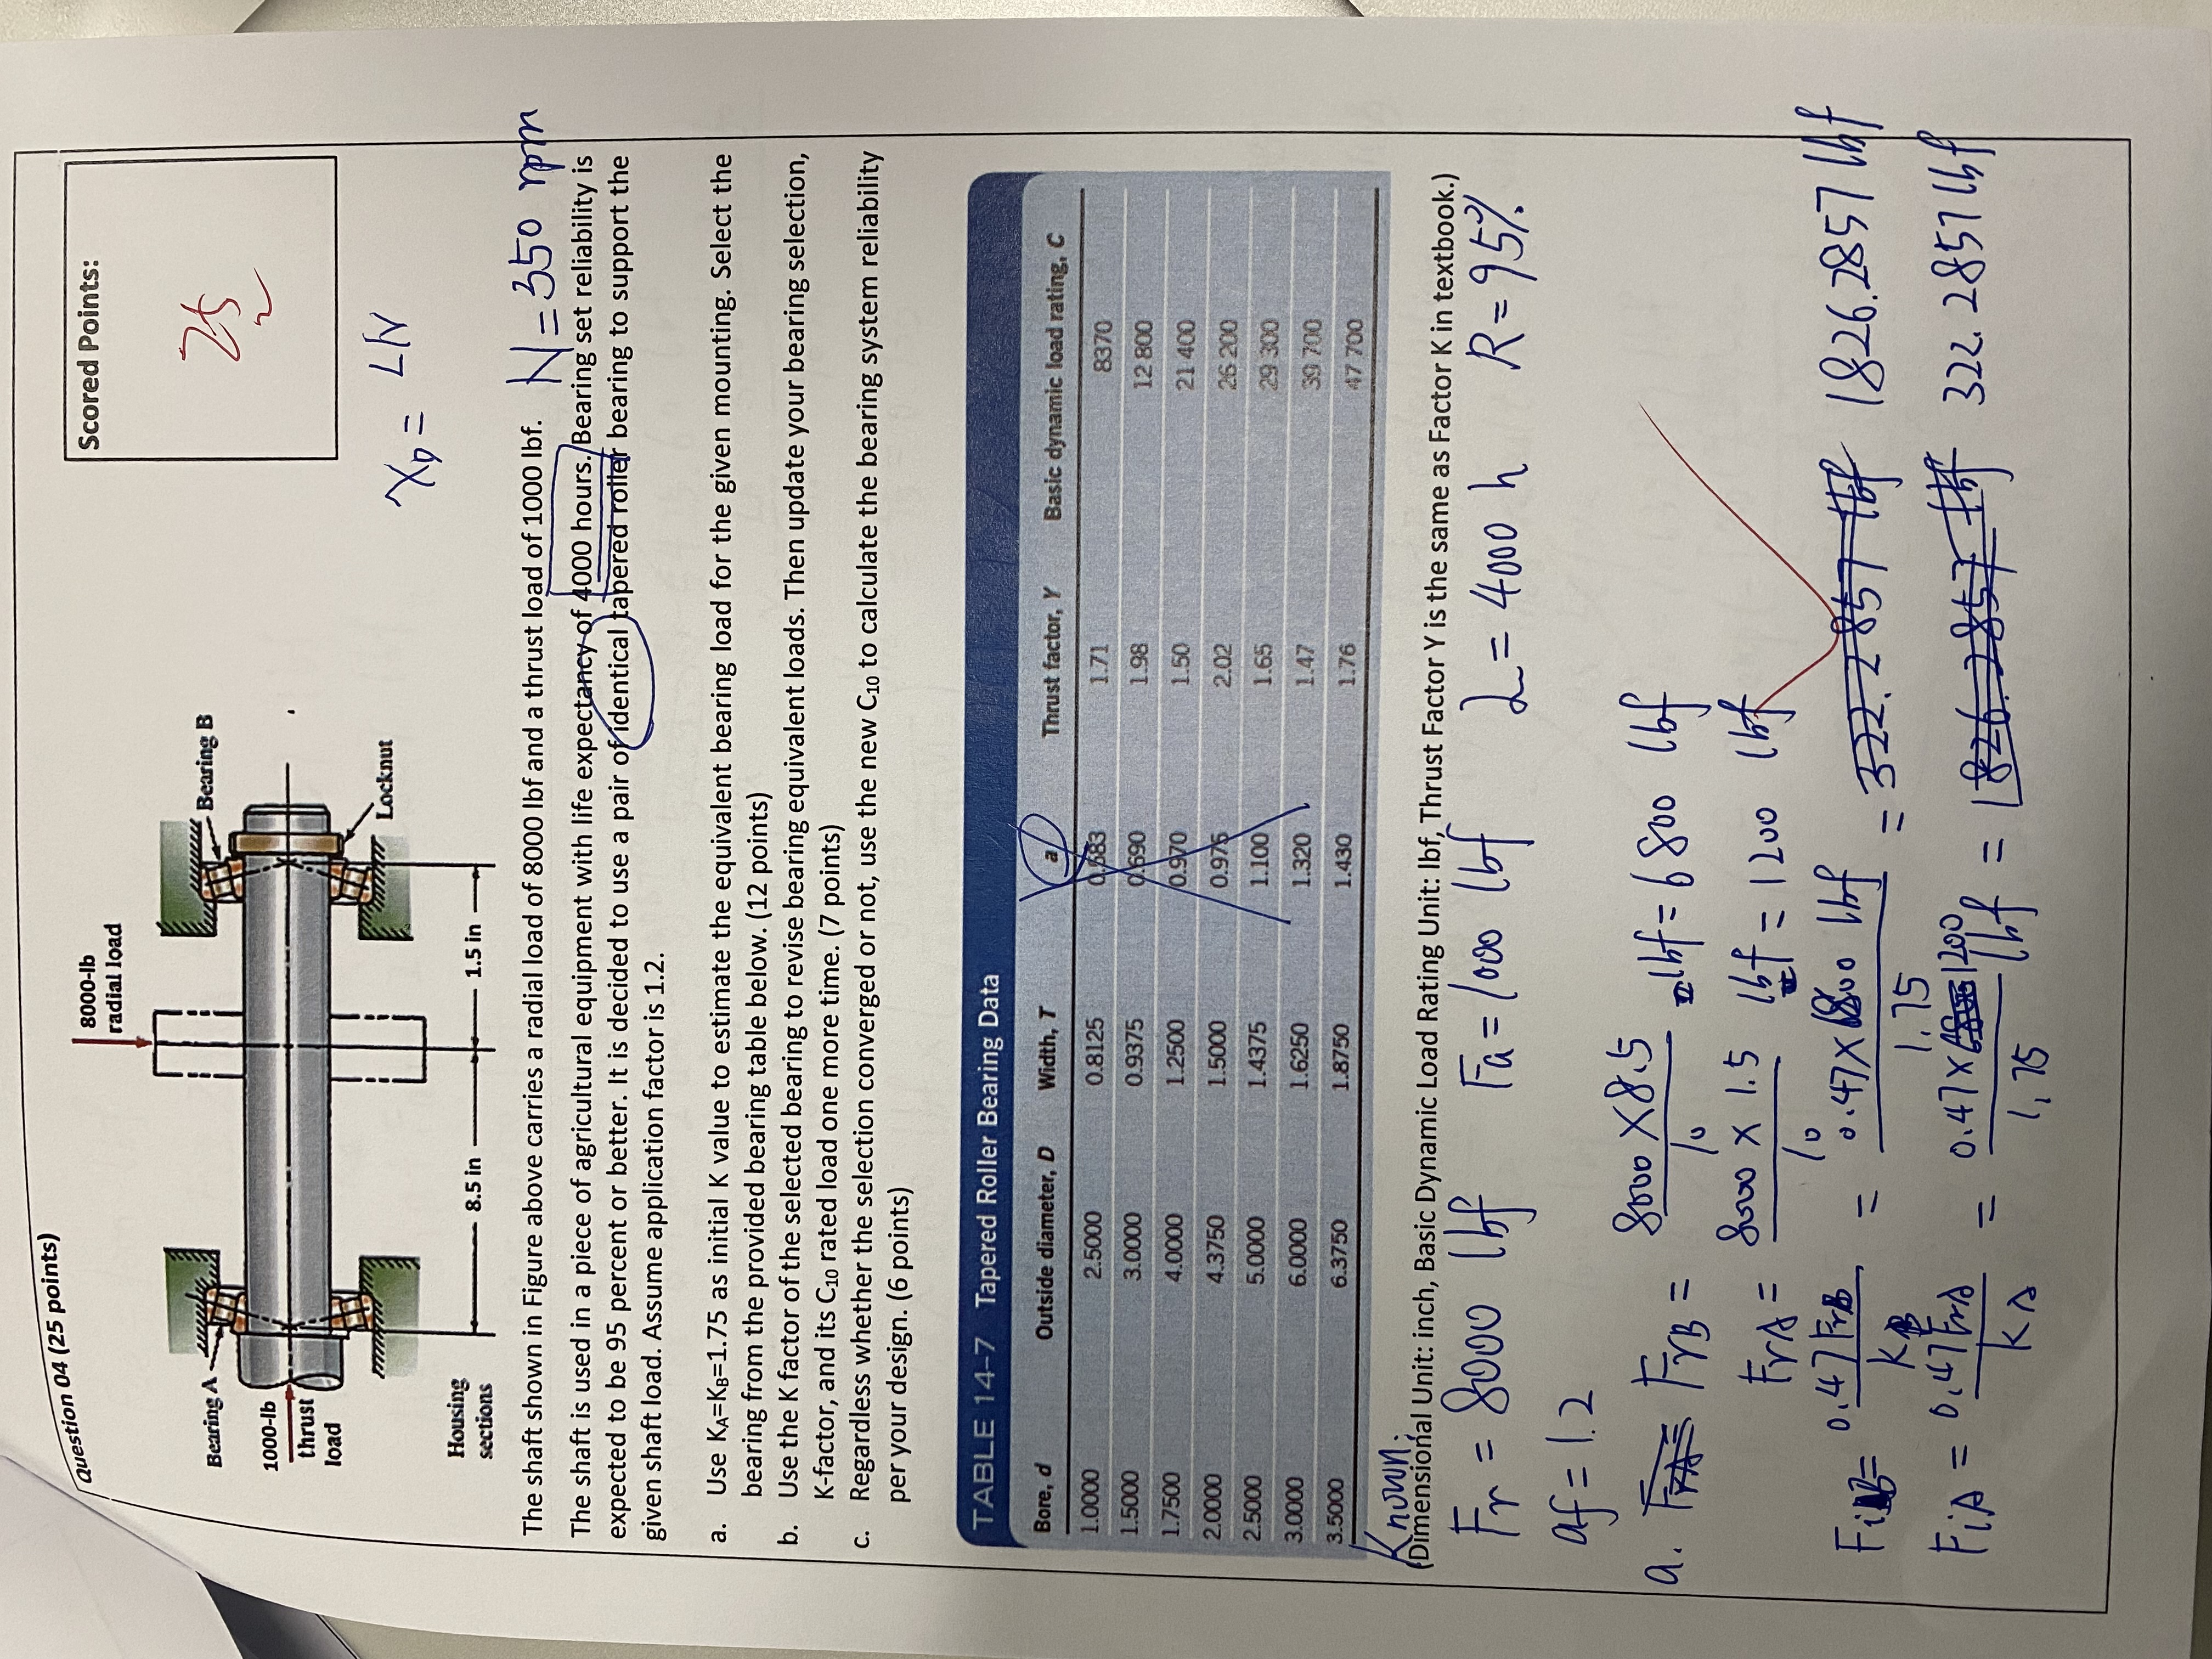 Question 04 (25 points)
Scored Points:
25
8000-lb
radial load
Bearing A
Bearing B
1000-lb
thrust
load
Locknut
Housing
sections
8.5 in
1.5 in
X_D = LN
The shaft shown in Figure above carries a radial load of 8000 lbf and a thrust load of 1000 lbf.
N = 350 rpm
The shaft is used in a piece of agricultural equipment with life expectancy of 4000 hours. Bearing set reliability is
expected to be 95 percent or better. It is decided to use a pair of identical tapered roller bearing to support the
given shaft load. Assume application factor is 1.2.
a. Use KA=KB=1.75 as initial K value to estimate the equivalent bearing load for the given mounting. Select the
bearing from the provided bearing table below. (12 points)
b. Use the K factor of the selected bearing to revise bearing equivalent loads. Then update your bearing selection,
K-factor, and its C10 rated load one more time. (7 points)
c. Regardless whether the selection converged or not, use the new C10 to calculate the bearing system reliability
per your design. (6 points)
TABLE 14-7 Tapered Roller Bearing Data
Bore, d Outside diameter, D Width, T a Thrust factor, Y Basic dynamic load rating, C
1.0000 2.5000 0.8125 0.583 1.71 8370
1.5000 3.0000 0.9375 0.690 1.98 12 800
1.7500 4.0000 1.2500 0.970 1.50 21 400
2.0000 4.3750 1.5000 0.975 2.02 26 200
2.5000 5.0000 1.4375 1.100 1.65 29 300
3.0000 6.0000 1.6250 1.320 1.47 39 700
3.5000 6.3750 1.8750 1.430 1.76 47 700
Known:
(Dimensional Unit: inch, Basic Dynamic Load Rating Unit: lbf, Thrust Factor Y is the same as Factor K in textbook.)
Fr = 8000 lbf Fa = 1000 lbf L = 4000 h R = 95%
af = 1.2
a. FrA = FrB = 8000 × 8.5 / 10 lbf = 6800 lbf
FrA = 8000 × 1.5 / 10 lbf = 1200 lbf
FiB = 0.47 FrB / KB = 0.47 × 6800 lbf / 1.75 = 322.2857 lbf 1826.2857 lbf
FiA = 0.47 FrA / KA = 0.47 × 1200 / 1.75 lbf = 1826.2857 lbf 322.2857 lbf